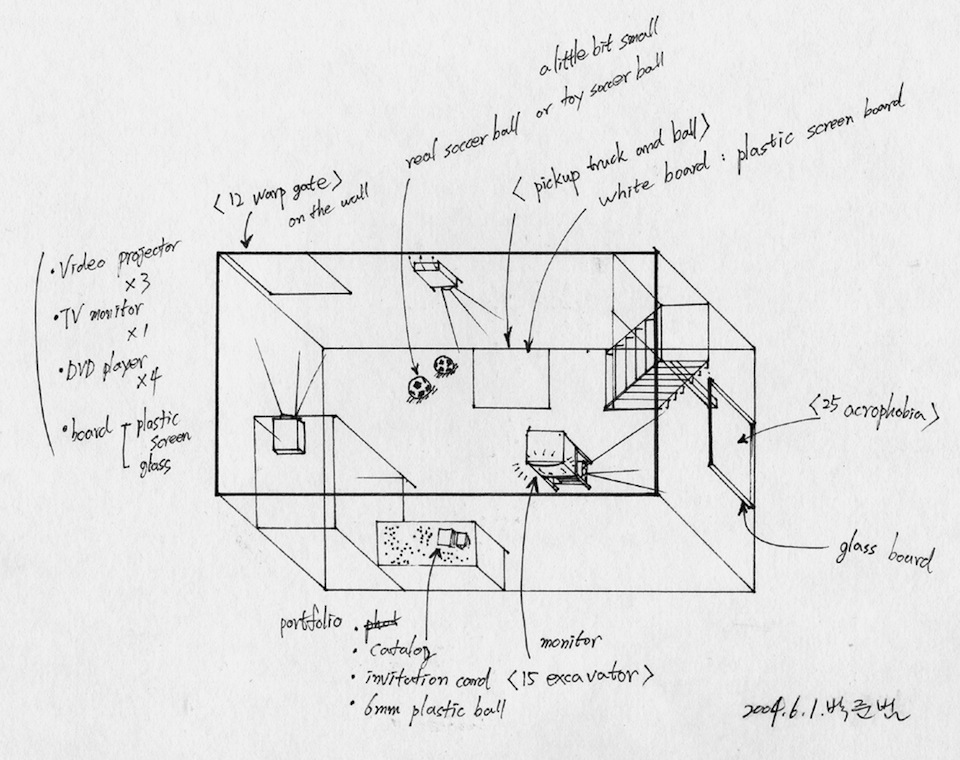 a little bit small
real soccer ball or toy soccer ball
<pickup truck and ball>
white board : plastic screen board
<12 warp gate>
on the wall
• Video projector
x3
• TV monitor
x1
• DVD player
x4
• board plastic
screen
glass
<25 acrophobia>
glass board
portfolio
• catalog
• invitation card
• 6mm plastic ball
monitor
<15 excavator>
2004.6.1. 박준범